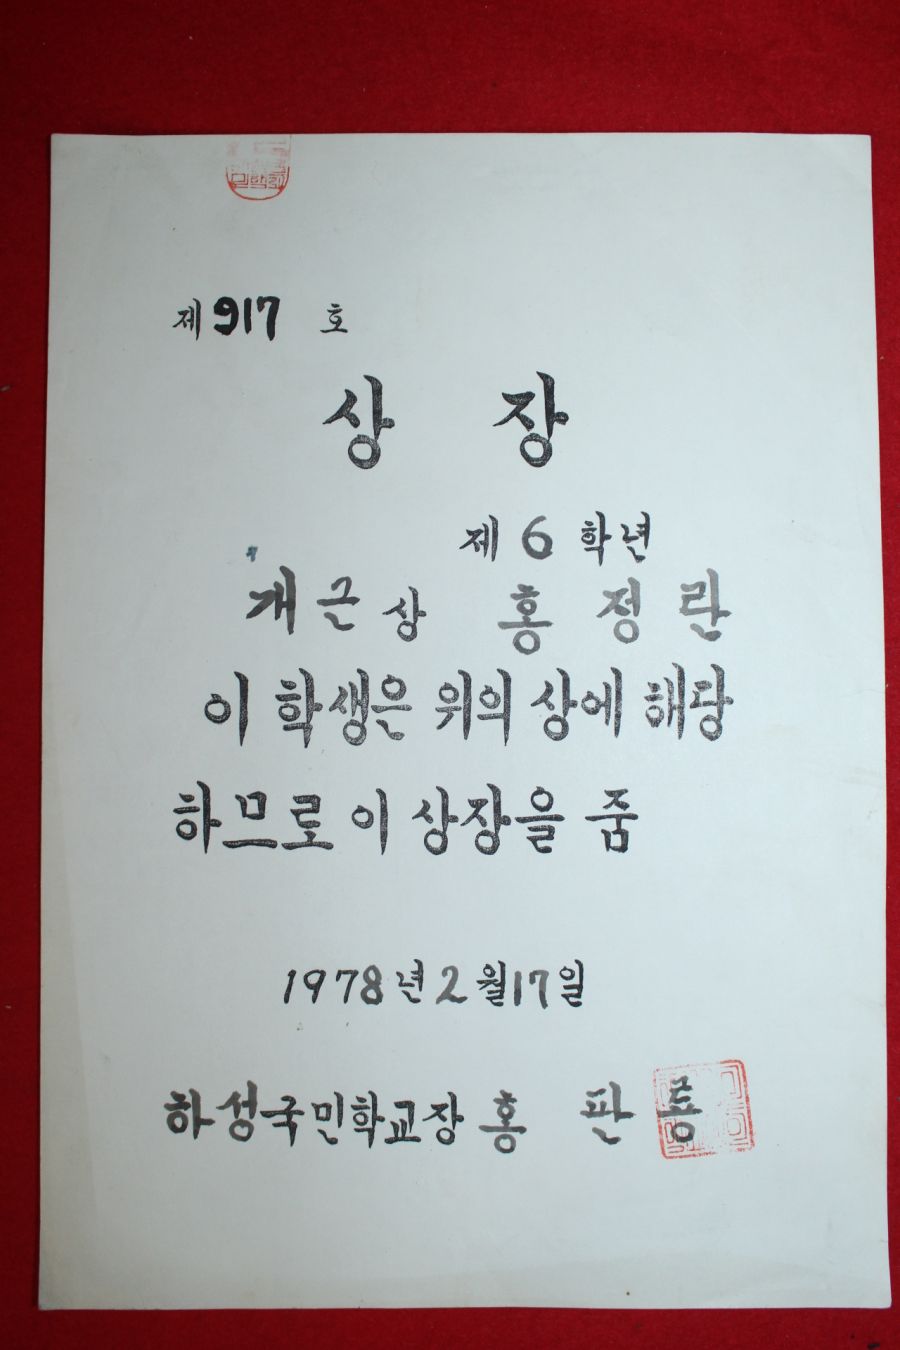 제 917 호
상 장
제 6 학년
개근상 홍 정 란
이 학생은 위의 상에 해당
하므로 이 상장을 줌
1978년 2월 17일
하성국민학교장 홍 판